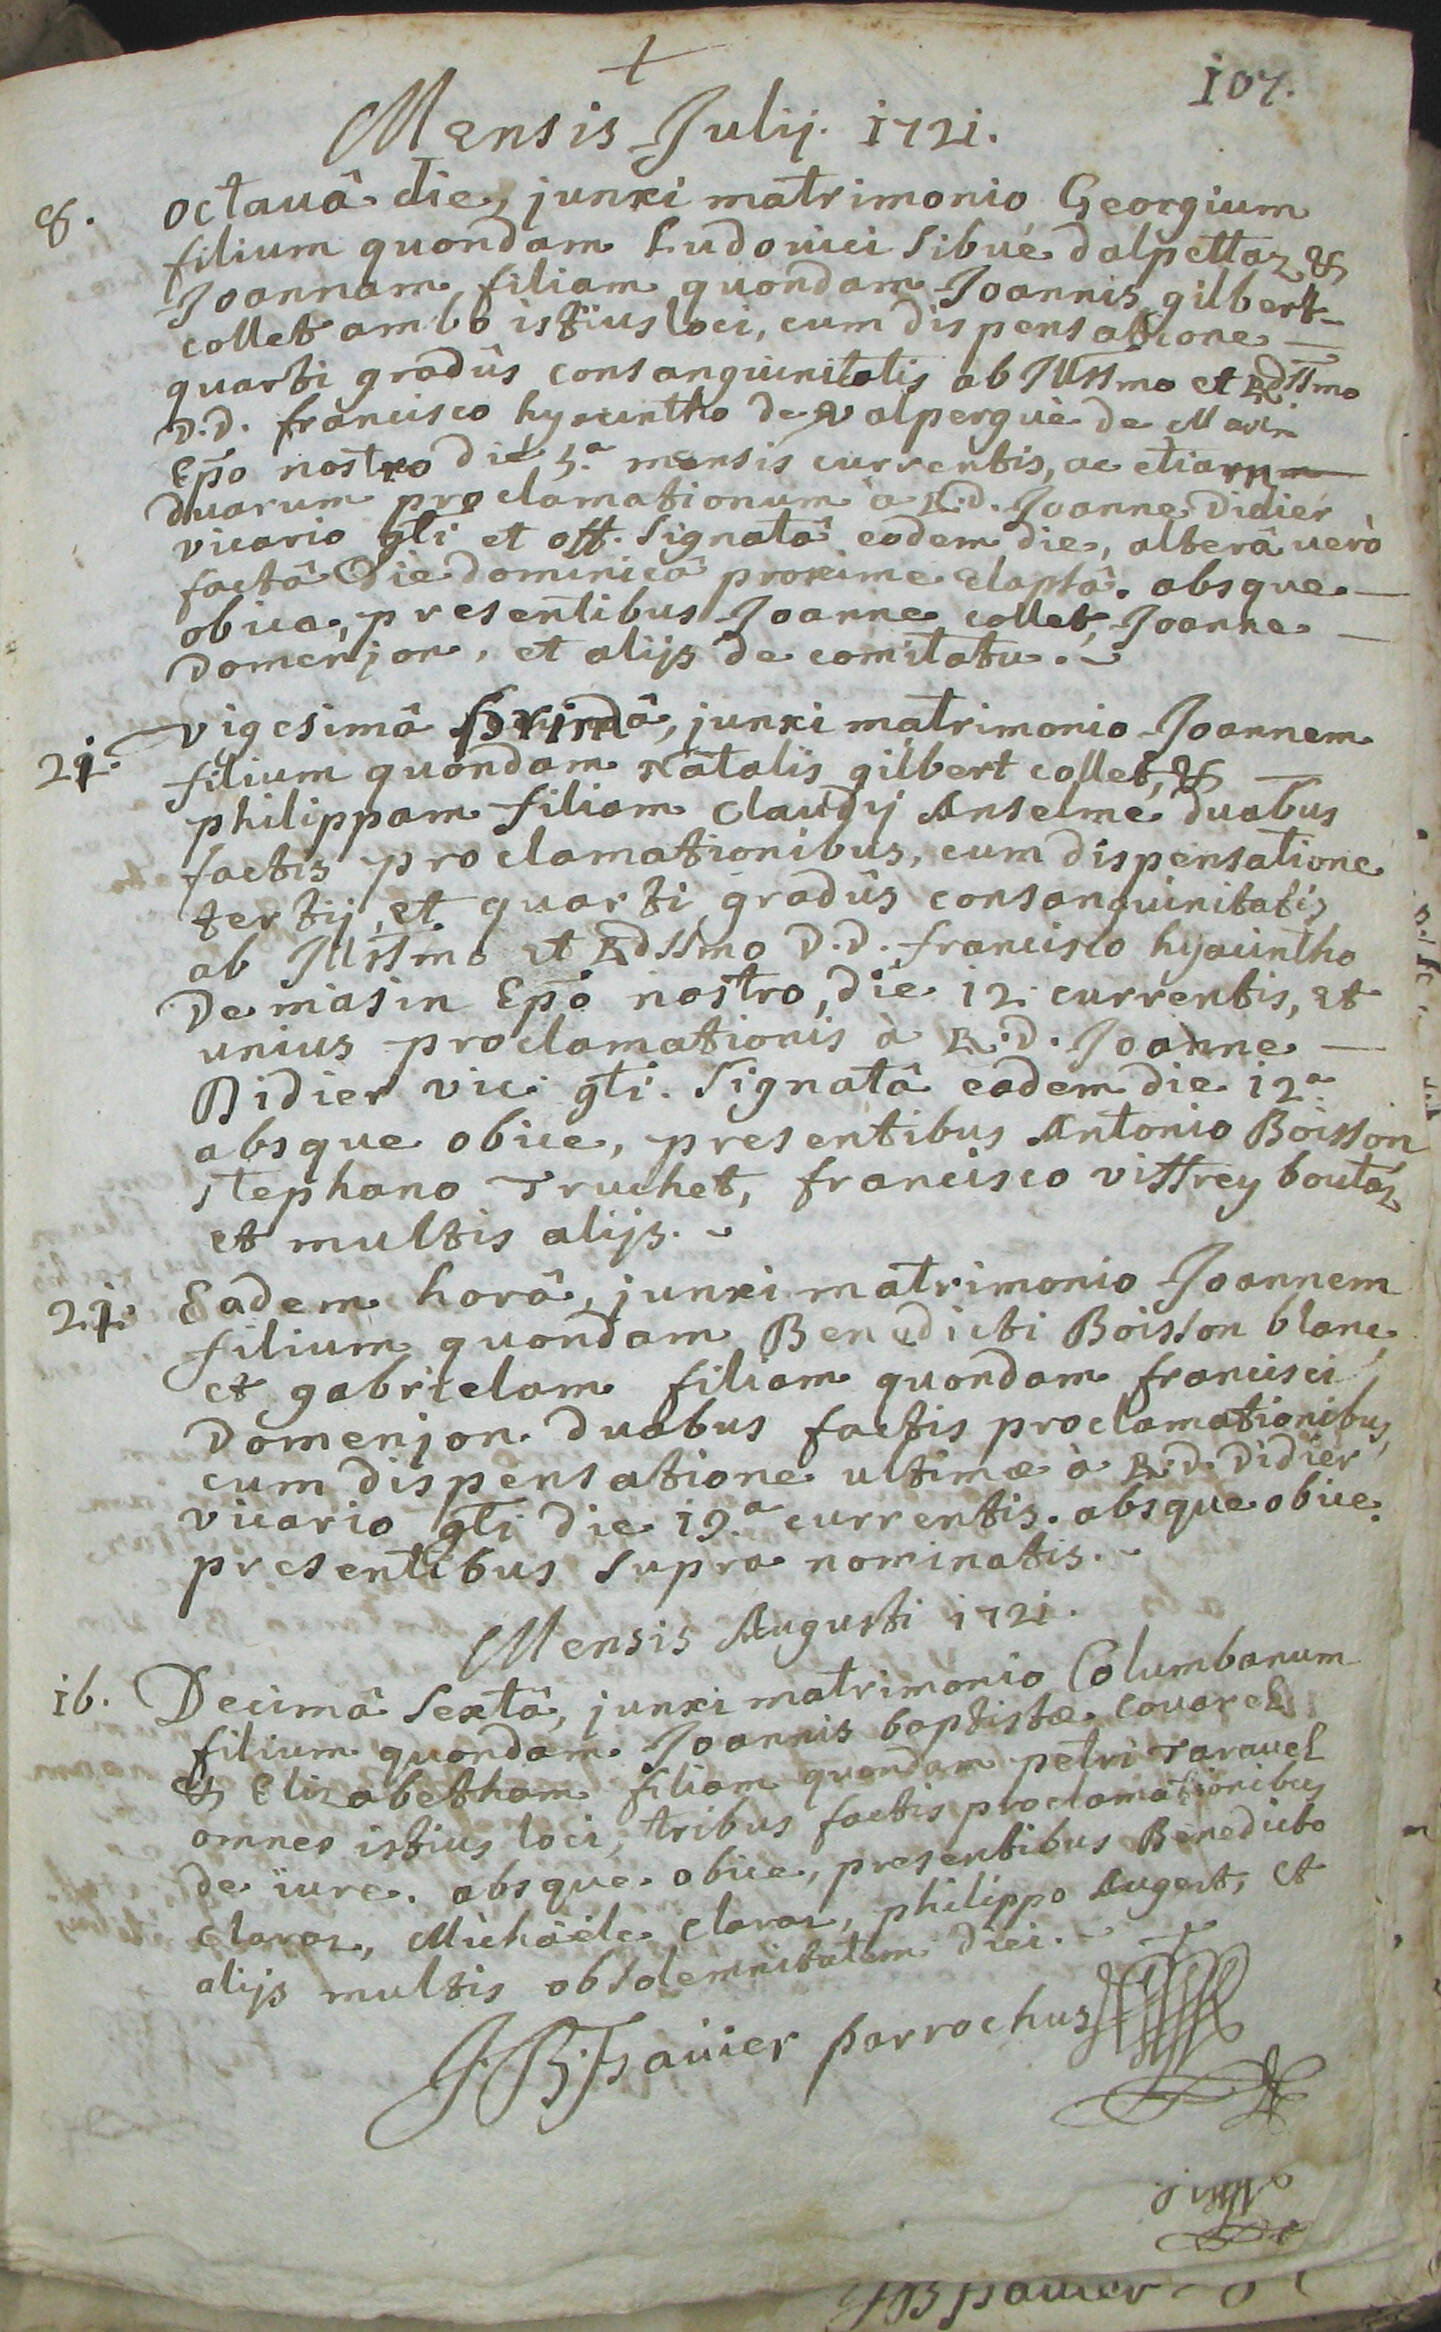 +
107.
Mensis Julij. 1721.
8. octauâ die, junxi matrimonio Georgium
filium quondam Ludouici Sibué dalpettaz &
Joannam, filiam quondam Joannis gilbert-
collet ambo istius loci, cum dispensatione —
quarti gradûs consanguinitatis ab Illssmo et Rdssmo
D.D. francisco hyacintho de valperguè de Masin
Epo nostro die 5.a mensis currentis, ac etiam
duarum proclamationum à R.d. Joanne Didier
vicario gti et off. Signatâ eadem die, alterâ uerò
factâ Die dominicâ proxime elapsâ. absque —
obice, presentibus Joanne collet, Joanne —
Domenjon, et alijs de comitatu.
21. vigesimâ primâ, junxi matrimonio Joannem
filium quondam Natalis gilbert collet, & —
philippam filiam Claudij Anselme duabus
factis proclamationibus, cum dispensatione
tertij, et quarti gradûs consanguinitatis
ab Illssmo et Rdssmo D.D. francisco hyacintho
De masin Epo nostro, die 12 currentis, et
unius proclamationis à R.D. Joanne —
Didier vic. gti. Signatâ eadem die 12.a
absque obice, presentibus Antonio Boisson
stephano Truchet, francisco vittrey boutaz
et multis alijs.
21. Eadem horâ, junxi matrimonio Joannem
filium quondam Benedicti Boisson blanc,
et gabrielam filiam quondam francisci
Domenjon. duabus factis proclamationibus,
cum dispensatione ultimæ à R.D. Didier
vicario gti die 19.a currentis. absque obice.
presentibus supra nominatis.
Mensis Augusti 1721.
16. Decimâ Sextâ, junxi matrimonio Columbanum
filium quondam Joannis baptistæ Couarel
& Elizabetham filiam quondam petri Tarauel
omnes istius loci, tribus factis proclamationibus
de iure. absque obice, presentibus Benedicto
claraz, Michäele claraz, philippo Augert, et
alijs multis ob solemnitatem diei.
J.B. Pauier parrochus
JB pauier